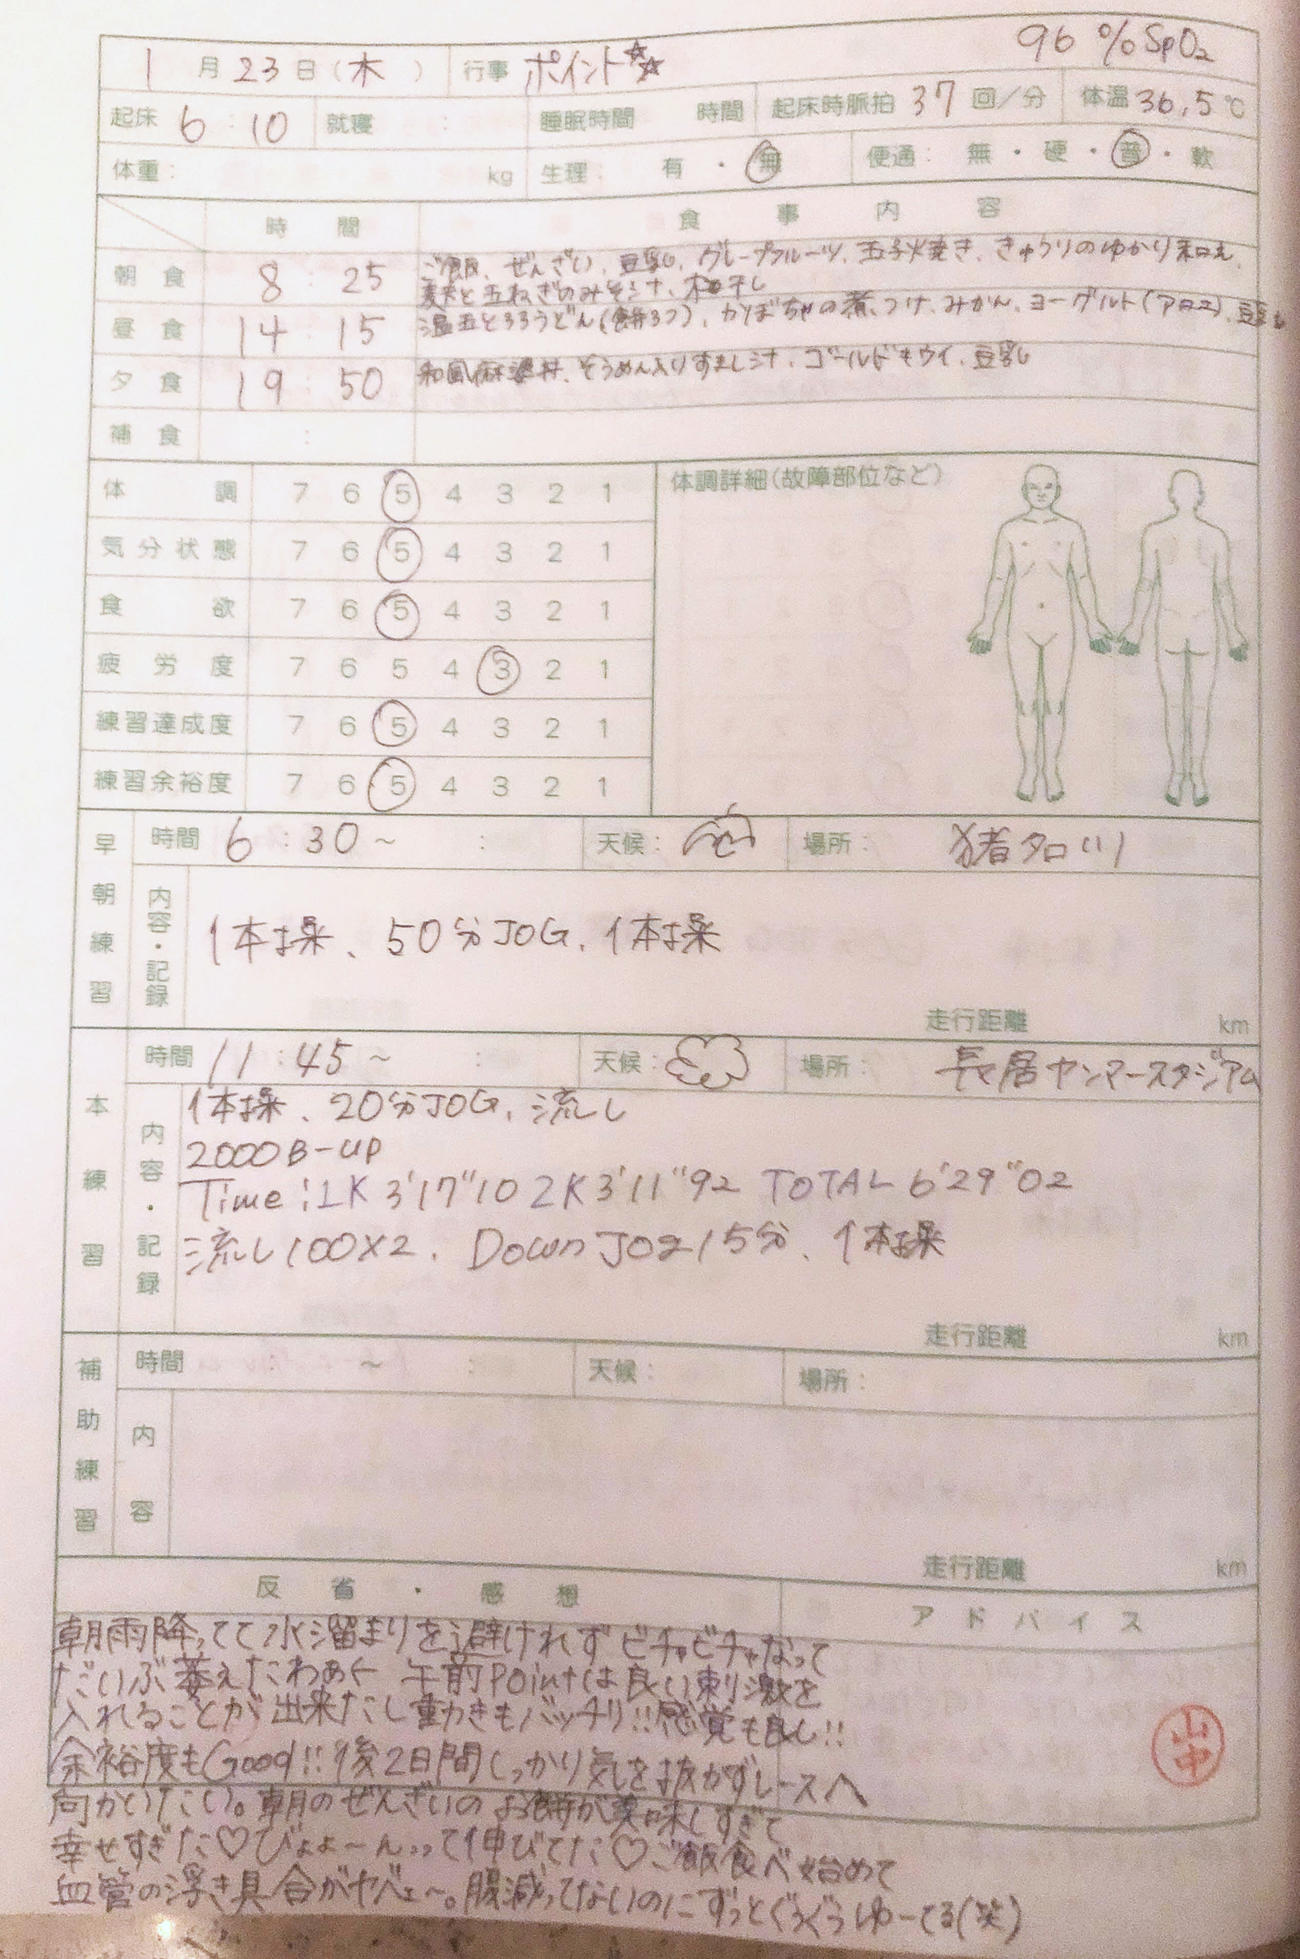 96%SpO2
1月23日(木) 行事 ポイント☆☆
起床 6:10 就寝 : 睡眠時間 時間 起床時脈拍 37回/分 体温36.5℃
体重: kg 生理: 有・無 便通: 無・硬・普・軟
時間 食事内容
朝食 8:25 ご飯、ぜんざい、豆乳、グレープフルーツ、玉子火焼き、きゅうりのゆかり和え、
麩と玉ねぎのみそ汁、梅干し
昼食 14:15 温玉とろろうどん(餅3つ)、かぼちゃの煮つけ、みかん、ヨーグルト(アロエ)、豆乳
夕食 19:50 和風麻婆丼、そうめん入りすまし汁、ゴールドキウイ、豆乳
補食 :
体調 7 6 5 4 3 2 1 体調詳細(故障部位など)
気分状態 7 6 5 4 3 2 1
食欲 7 6 5 4 3 2 1
疲労度 7 6 5 4 3 2 1
練習達成度 7 6 5 4 3 2 1
練習余裕度 7 6 5 4 3 2 1
早朝練習 時間 6:30~ : 天候: 場所: 猪名川
内容・記録 体操、50分JOG、体操
走行距離 km
本練習 時間 11:45~ : 天候: 場所: 長居ヤンマースタジアム
内容・記録 体操、20分JOG、流し
2000B-up
Time:1K 3'17"10 2K 3'11"92 TOTAL 6'29"02
流し100×2、Down Jog15分、体操
走行距離 km
補助練習 時間 : ~ : 天候: 場所:
内容
走行距離 km
反省・感想 アドバイス
朝雨降ってて水溜まりを避けれずビチャビチャなって
だいぶ萎えたわぁ← 午前Pointは良い刺激を
入れることが出来たし動きもバッチリ!!感覚も良し!!
余裕度もGood!!後2日間しっかり気を抜かずレースへ
向かいたい。朝のぜんざいのお餅が美味しすぎて
幸せすぎた♡びょょ〜んって伸びてた♡ご飯食べ始めて
血管の浮き具合がヤベェ〜。腸減ってないのにずっとぐぅぐぅゆーてる(笑)
山中